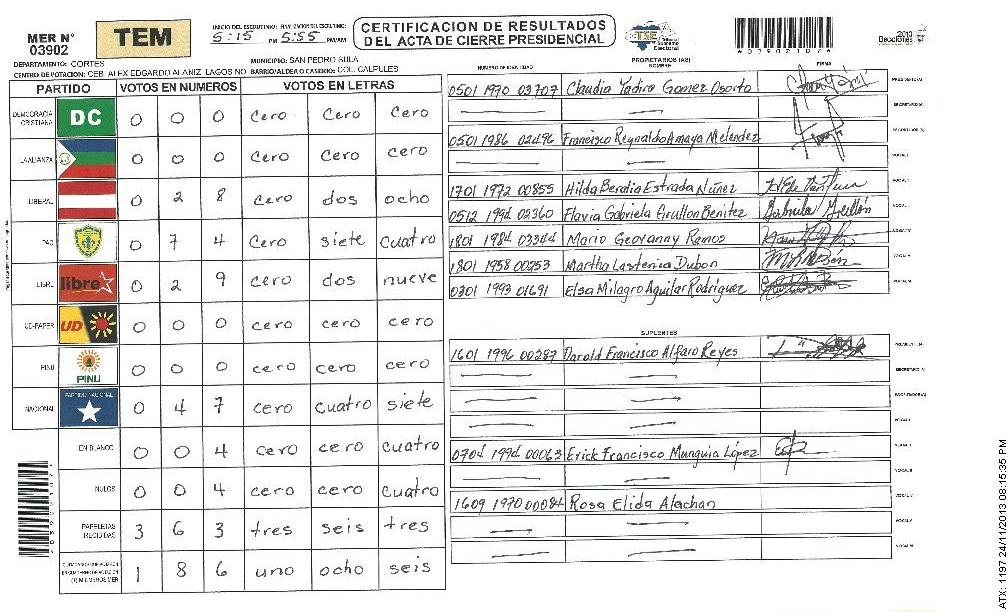 MER N°
03902
TEM
INICIO DEL ESCRUTINIO: FINALIZACION DEL ESCRUTINIO:
5:15 PM 5:55 PM/AM
CERTIFICACION DE RESULTADOS
DEL ACTA DE CIERRE PRESIDENCIAL
TSE Tribunal Supremo Electoral
Elecciones 2013
DEPARTAMENTO: CORTES
MUNICIPIO: SAN PEDRO SULA
CENTRO DE VOTACION: CEB. ALEX EDGARDO ALANIZ LAGOS NO BARRIO/ALDEA O CASERIO: COL. CALPULES
PARTIDO VOTOS EN NUMEROS VOTOS EN LETRAS
DEMOCRACIA CRISTIANA DC 0 0 0 Cero Cero Cero
LA ALIANZA 0 0 0 Cero Cero cero
LIBERAL 0 2 8 cero dos ocho
PAC 0 7 4 Cero siete cuatro
LIBRE libre 0 2 9 cero dos nueve
UD-FAPER UD 0 0 0 cero cero cero
PINU PINU 0 0 0 cero cero cero
NACIONAL PARTIDO NACIONAL 0 4 7 cero cuatro siete
EN BLANCO 0 0 4 cero cero cuatro
NULOS 0 0 4 cero cero cuatro
PAPELETAS RECIBIDAS 3 6 3 tres seis tres
1 8 6 uno ocho seis
PROPIETARIOS (AS)
NUMERO DE IDENTIDAD NOMBRE FIRMA
0501 1970 03707 Claudia Yadira Gomez Osorto
0501 1986 02496 Francisco Reynaldo Amaya Melendez
1701 1972 00855 Hilda Beralia Estrada Núnez
0512 1994 02360 Flavia Gabriela Grullon Benitez
1801 1984 03344 Mario Geovanny Ramos
1801 1958 00253 Martha Lastenia Dubon
0301 1993 01691 Elsa Milagro Aguilar Rodriguez
SUPLENTES
1601 1996 00287 Darold Francisco Alfaro Reyes
0704 1994 00063 Erick Francisco Munguia López
1609 1970 00084 Rosa Elida Alachan
ATX: 1197 24/11/2013 08:15:35 PM